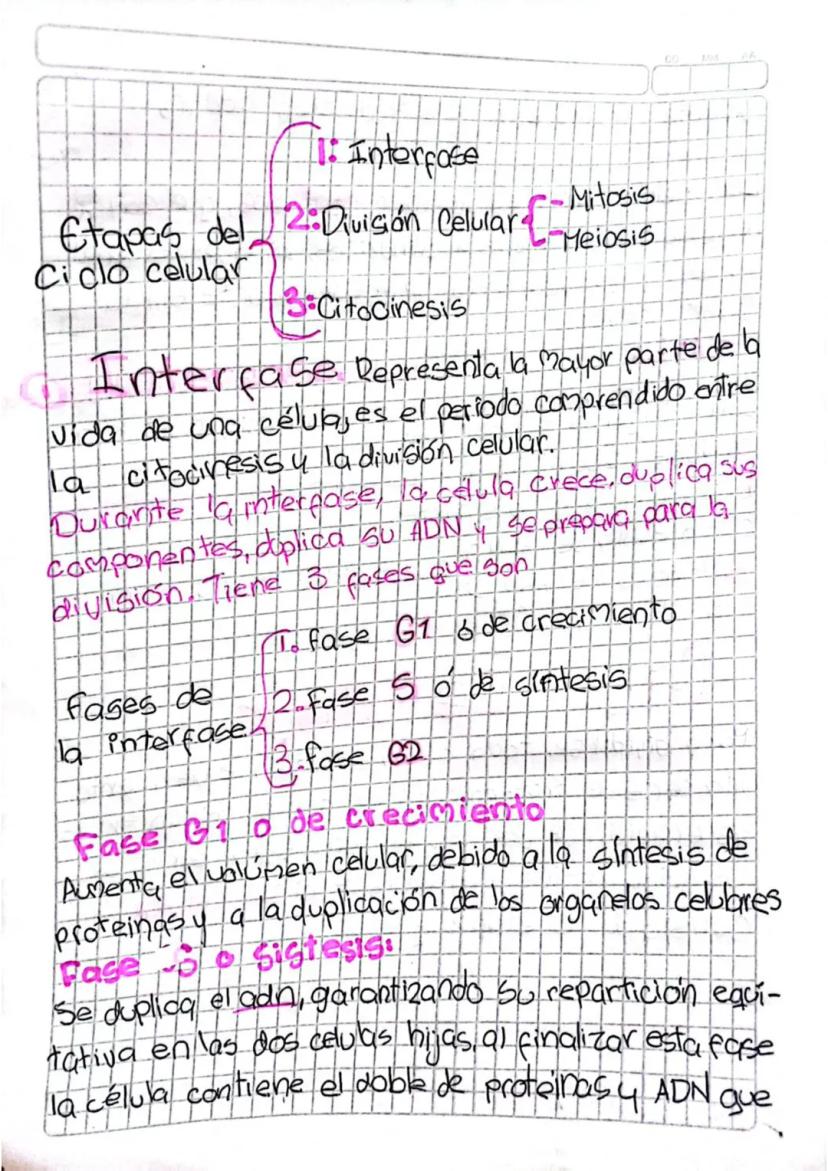 1: Interfase
Etapas del
Ciclo celular
2: División Celular
- Mitosis
- Meiosis
3: Citocinesis
Interfase Representa la mayor parte de la
vida de una célula, es el periodo comprendido entre
la citocinesis y la división celular.
Durante la interfase, la célula crece, duplica sus
componentes, duplica su ADN y se prepara para la
división. Tiene 3 fases que son
fases de
la interfase
1. fase G1 ó de crecimiento
2. fase S ó de síntesis
3. fase G2
Fase G1 o de crecimiento
Aumenta el volúmen celular, debido a la síntesis de
proteinas y a la duplicación de los organelos celulares
Fase -S o sistesis:
Se duplica el adn, garantizando su repartición equi-
tativa en las dos celulas hijas, al finalizar esta fase
la célula contiene el doble de proteinas y ADN que